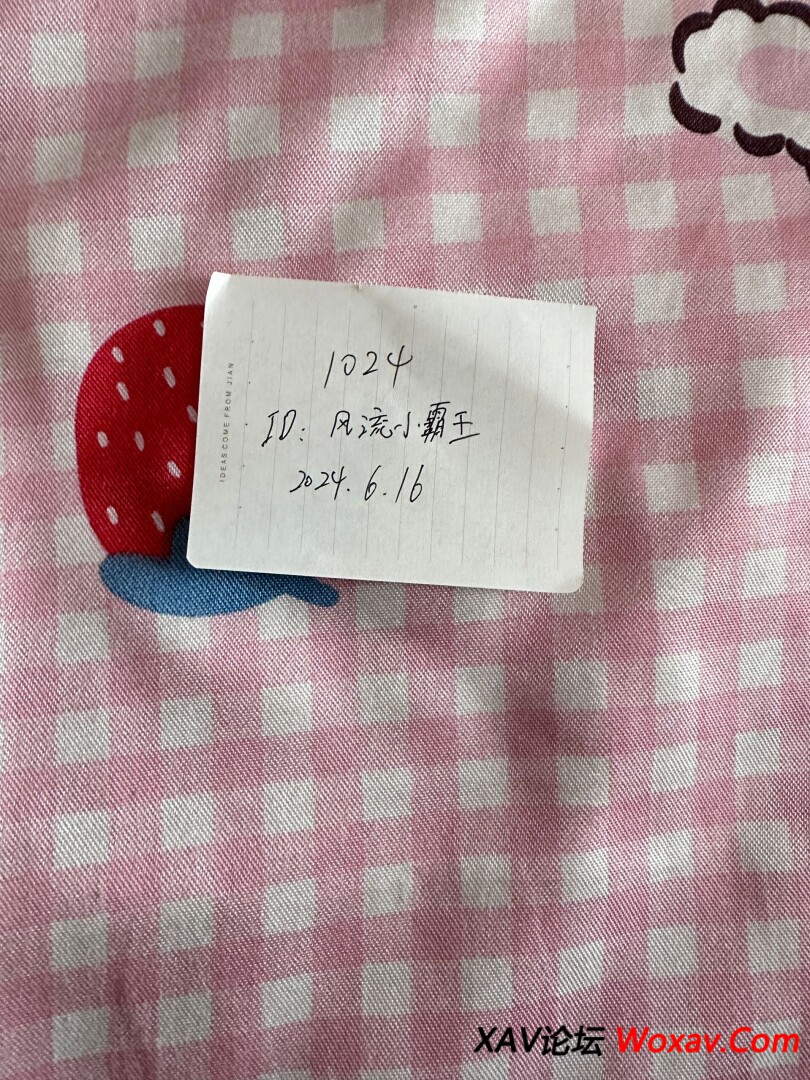 1024
ID: 风流小霸王
2024.6.16
IDEAS COME FROM JIAN
XAV论坛 Woxav.Com